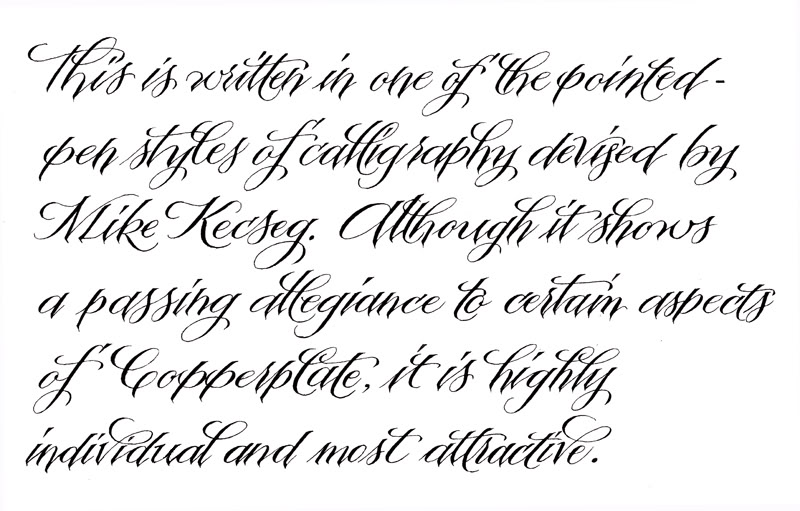 This is written in one of the pointed-
pen styles of calligraphy devised by
Mike Kecseg. Although it shows
a passing allegiance to certain aspects
of Copperplate, it is highly
individual and most attractive.